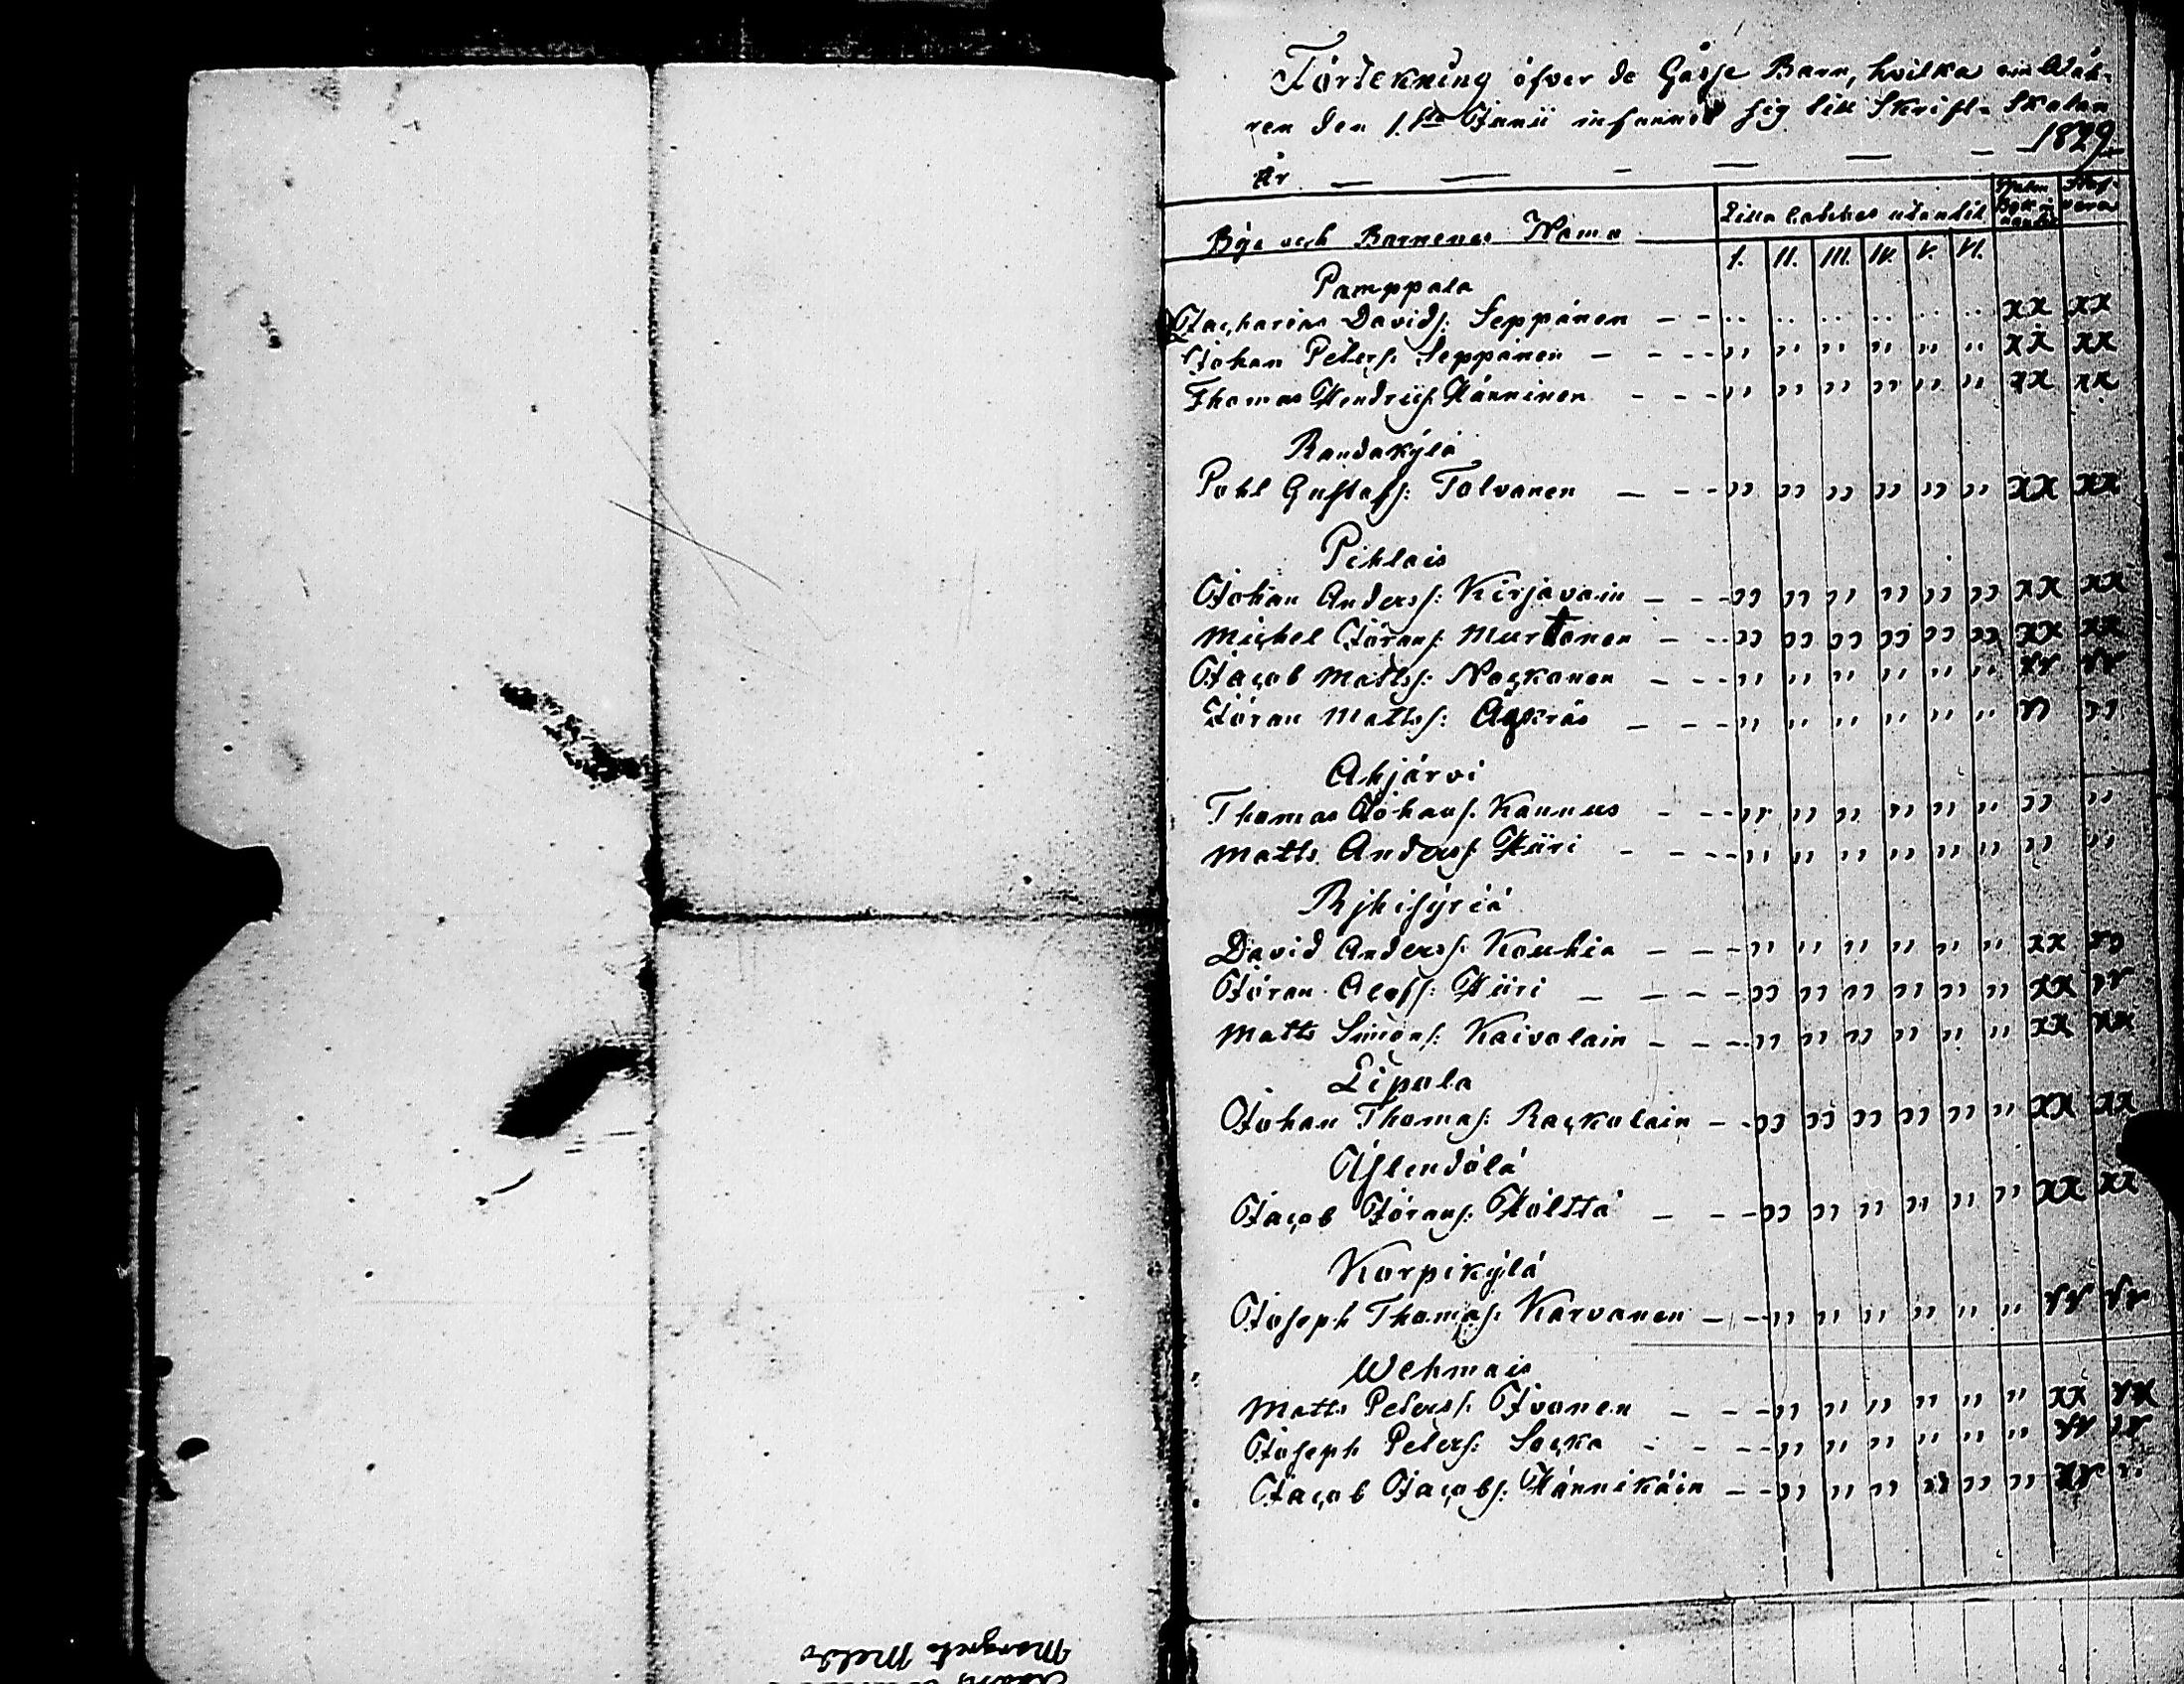 Förtekning öfver de Gåsse Barn, hvilka
ren den 1.sta Junii infunnet sig till Skrift-Skolan
År — — — — — — 1829
Bye och Barnenes Namn
Lilla utantil
I. II. III. IV. V. VI.
Pamppala
Zacharias Davids: Seppänen — - ,, ,, ,, ,, ,, ,, XX XX
Johan Peters: Seppänen — - - ,, ,, ,, ,, ,, ,, XX XX
Thomas Hendrics: Hänninen - - - ,, ,, ,, ,, ,, ,, XX XX
Randakylä
Pohl Gustafs: Tolvanen — - - ,, ,, ,, ,, ,, ,, XX XX
Pihlais
Johan Anderss: Kirjavain — - - ,, ,, ,, ,, ,, ,, XX XX
Michel Görans: Murtonen — - - ,, ,, ,, ,, ,, ,, XX XX
Jacob Mattss: Nockonen — - - ,, ,, ,, ,, ,, ,, XX XX
Göran Mattss: Ägräs — - - ,, ,, ,, ,, ,, ,, ,, ,,
Ahjärvi
Thomas Johans: Kannus - - - ,, ,, ,, ,, ,, ,, ,, ,,
Matts Anders: Hiiri - - - ,, ,, ,, ,, ,, ,, ,, ,,
Rjhisyriä
David Anders: Kouhia — - - ,, ,, ,, ,, ,, ,, XX ,,
Göran Olofs: Hiiri — - - ,, ,, ,, ,, ,, ,, XX ,,
Matts Simons: Kaivolain — - - ,, ,, ,, ,, ,, ,, XX XX
Lipola
Johan Thomas: Rackolain - - ,, ,, ,, ,, ,, ,, XX XX
Islendölä
Jacob Görans: Hölttä — - - ,, ,, ,, ,, ,, ,, XX XX
Korpikylä
Joseph Thomas: Karvanen - - ,, ,, ,, ,, ,, ,, XX XX
Wehmais
Matts Peters: Ivonen — - - ,, ,, ,, ,, ,, ,, XX XX
Joseph Peters: Socka - - - ,, ,, ,, ,, ,, ,, XX XX
Jacob Jacobs: Hännikäin - - ,, ,, ,, ,, ,, ,, XX ,,
Margreta